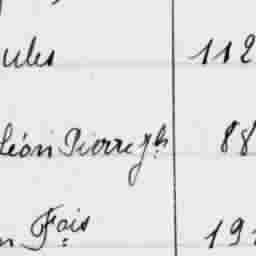 ules 112
Léon Pierre Jh 88
n Fçis 191